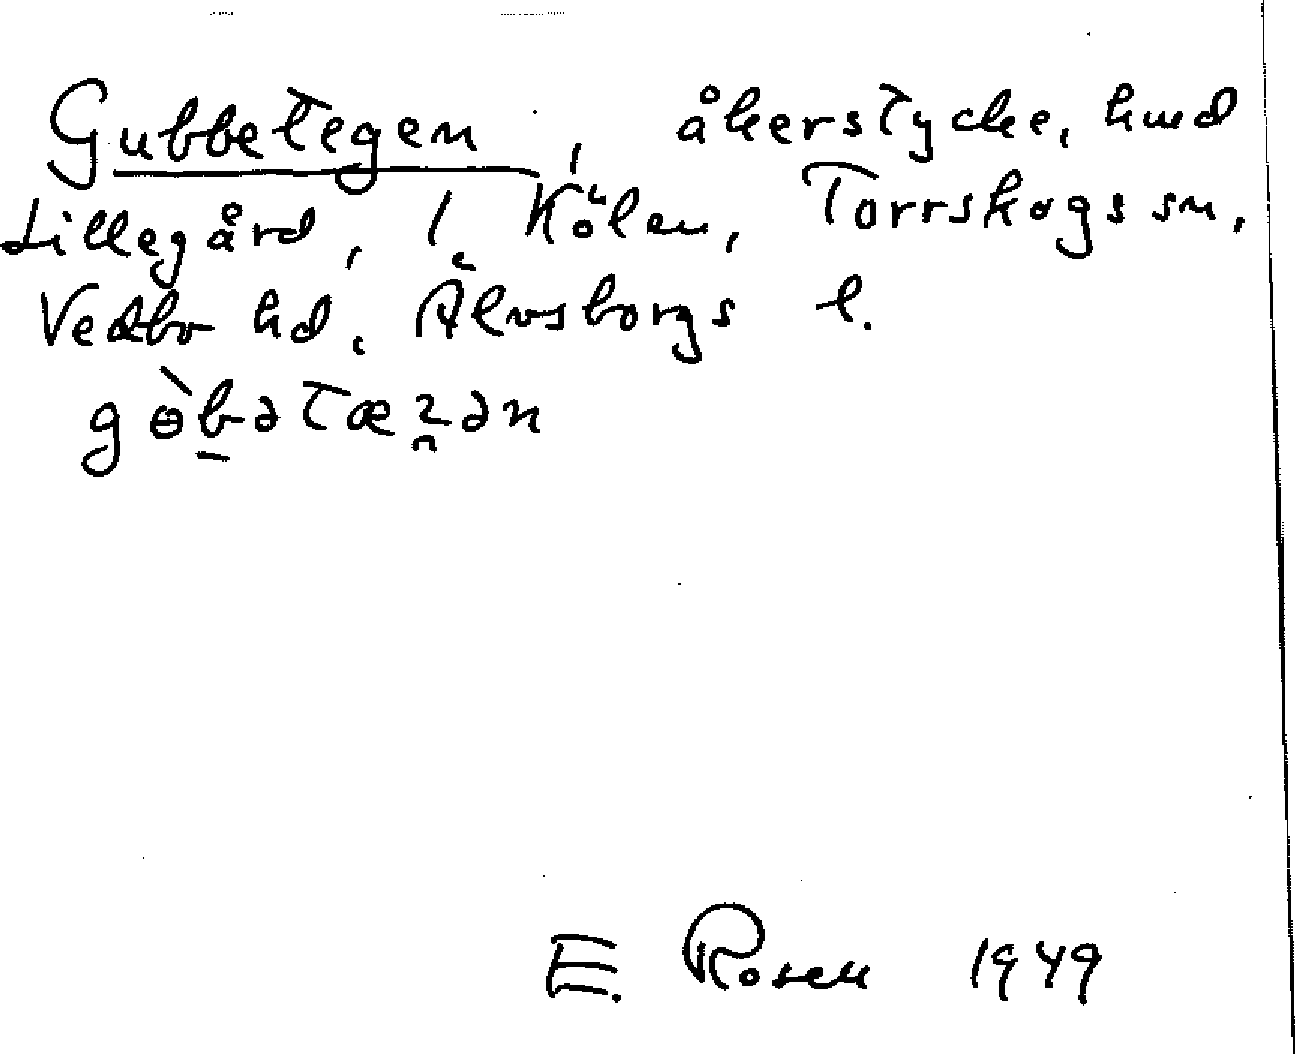 Gubbetegen, åkerstycke, hmd
Lillegård, 1 Kölen, Torrskogs sn,
Vedbo hd, Älvsborgs l.
gɵ̀b̲ətæʔ̯ən
E. Rosen 1949